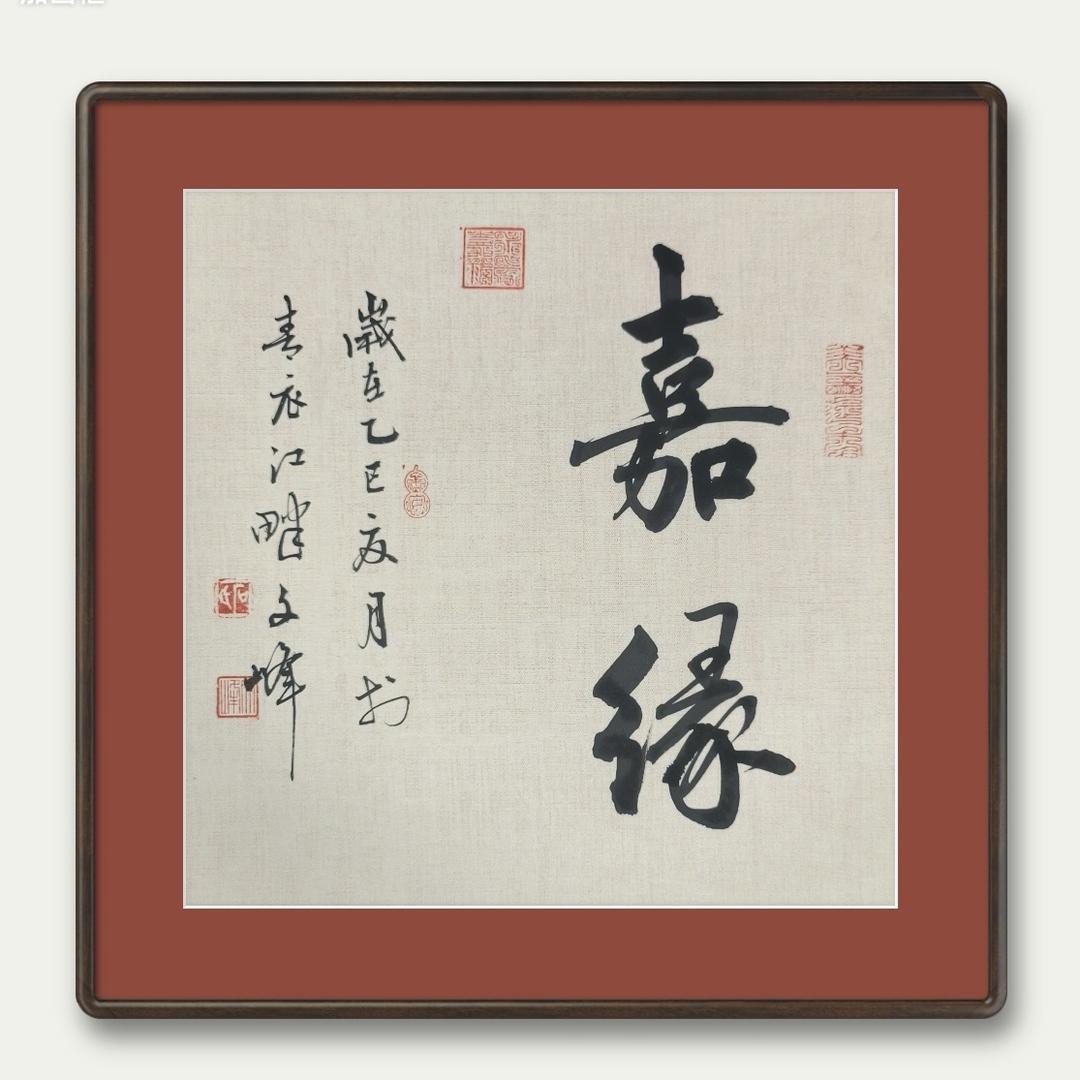 嘉缘
歲在乙巳夏月于
青衣江畔文峰